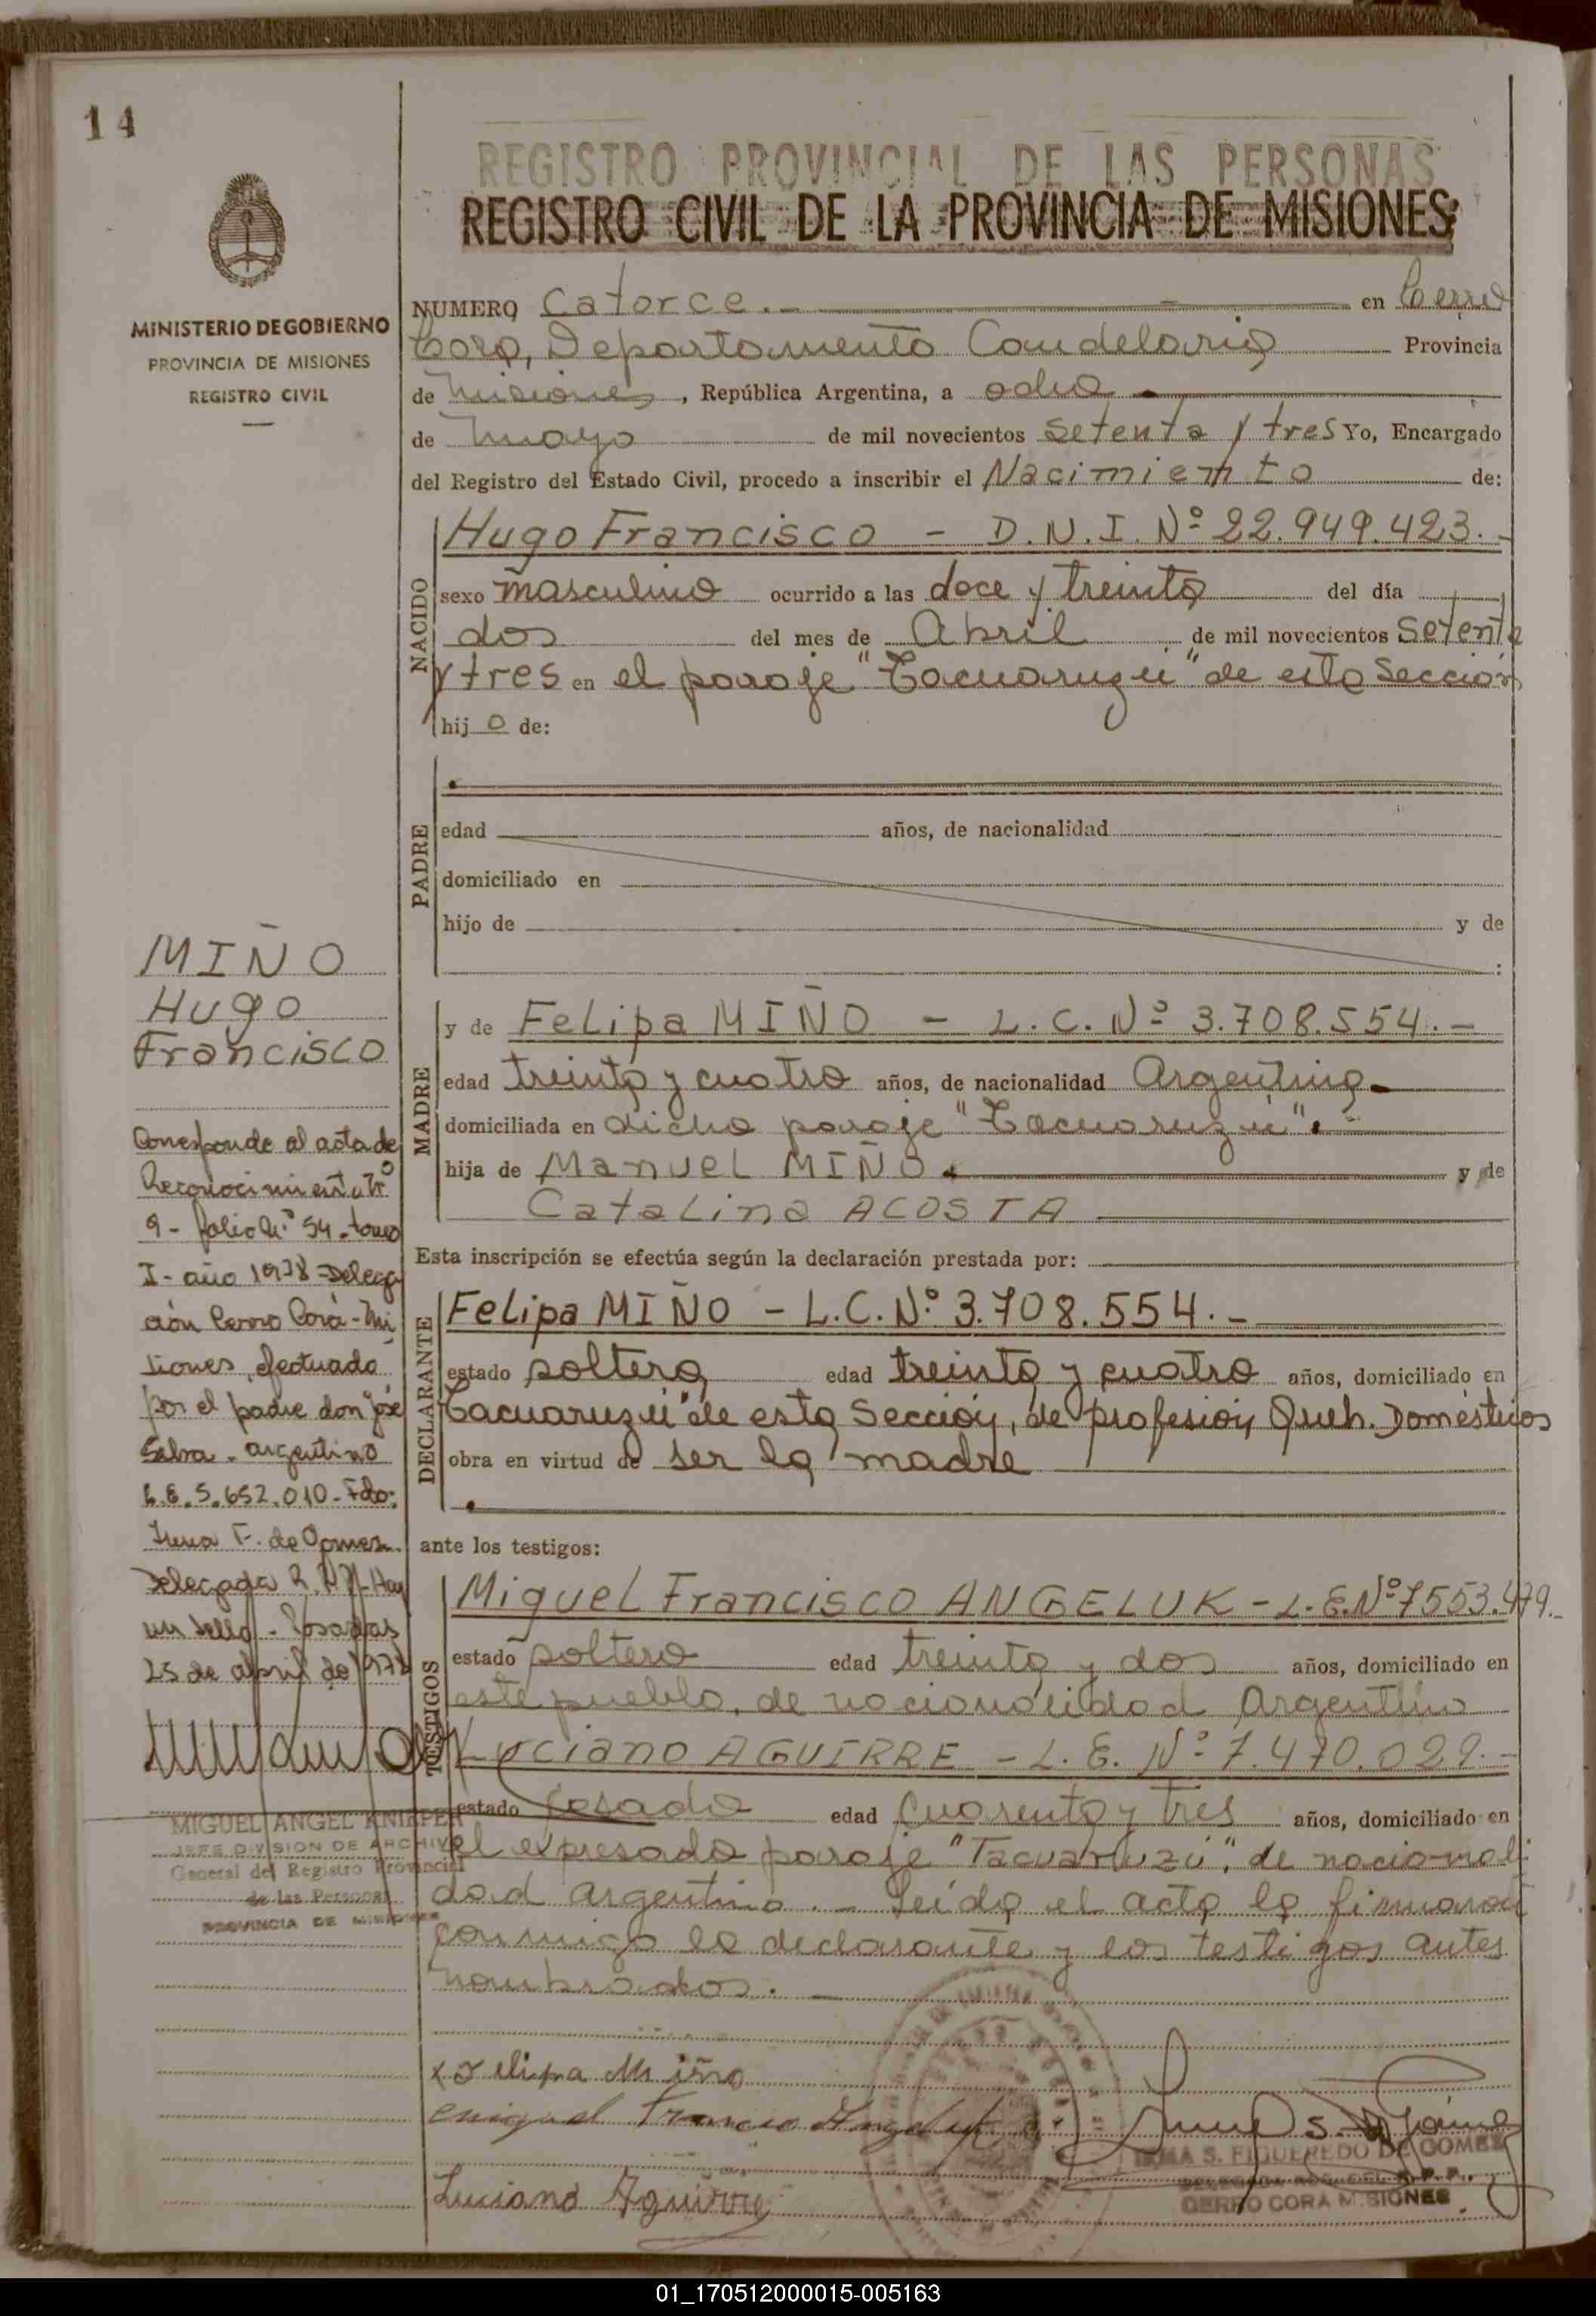 14
MINISTERIO DE GOBIERNO
PROVINCIA DE MISIONES
REGISTRO CIVIL
REGISTRO PROVINCIAL DE LAS PERSONAS
REGISTRO CIVIL DE LA PROVINCIA DE MISIONES
NUMERO Catorce.— en Cerro
Corá, Departamento Candelaria Provincia
de Misiones, República Argentina, a ocho
de mayo de mil novecientos setenta y tres Yo, Encargado
del Registro del Estado Civil, procedo a inscribir el Nacimiento de:
NACIDO
Hugo Francisco - D.N.I. Nº 22.949.423.-
sexo masculino ocurrido a las doce y treinta del día
dos del mes de Abril de mil novecientos setenta
y tres en el paraje "Tacuaruzú" de esta Sección
hijo de:
PADRE
edad años, de nacionalidad
domiciliado en
hijo de y de
MADRE
y de Felipa MIÑO - L.C. Nº 3.708.554.-
edad treinta y cuatro años, de nacionalidad Argentina.
domiciliada en dicho paraje "Tacuaruzú".
hija de Manuel MIÑO. y de
Catalina ACOSTA
Esta inscripción se efectúa según la declaración prestada por:
DECLARANTE
Felipa MIÑO - L.C. Nº 3.708.554.-
estado soltera edad treinta y cuatro años, domiciliado en
Tacuaruzú" de esta Sección, de profesión Queh. Domésticos
obra en virtud de ser la madre
ante los testigos:
TESTIGOS
Miguel Francisco ANGELUK - L.E. Nº 7553.479.-
estado soltero edad treinta y dos años, domiciliado en
este pueblo, de nacionalidad Argentino
Luciano AGUIRRE - L.E. Nº 7.470.029.-
estado casado edad cuarenta y tres años, domiciliado en
el expresado paraje "Tacuaruzú", de nacionali
dad argentina.- Leída el acta la firmaron
conmigo la declarante y los testigos antes
nombrados.
Felipa Miño
Luciano Aguirre
IRMA S. FIGUEREDO DE GOMEZ
CERRO CORA MISIONES
MIÑO
Hugo
Francisco
Corresponde al acta de
Reconocimiento Nº
9 - folio Nº 54 - tomo
I - año 1978 - Delega
ción Cerro Corá - Mi
siones, efectuado
por el padre don José
Silva - argentino
L.E. 5.652.010 - Fdo:
Irma F. de Gomez
Delegada R.P.P. Hay
un sello - Posadas
25 de abril de 1978
MIGUEL ANGEL KNIEPER
JEFE DIVISION DE ARCHIVO
General del Registro Provincial
de las Personas
PROVINCIA DE MISIONES
01_170512000015-005163